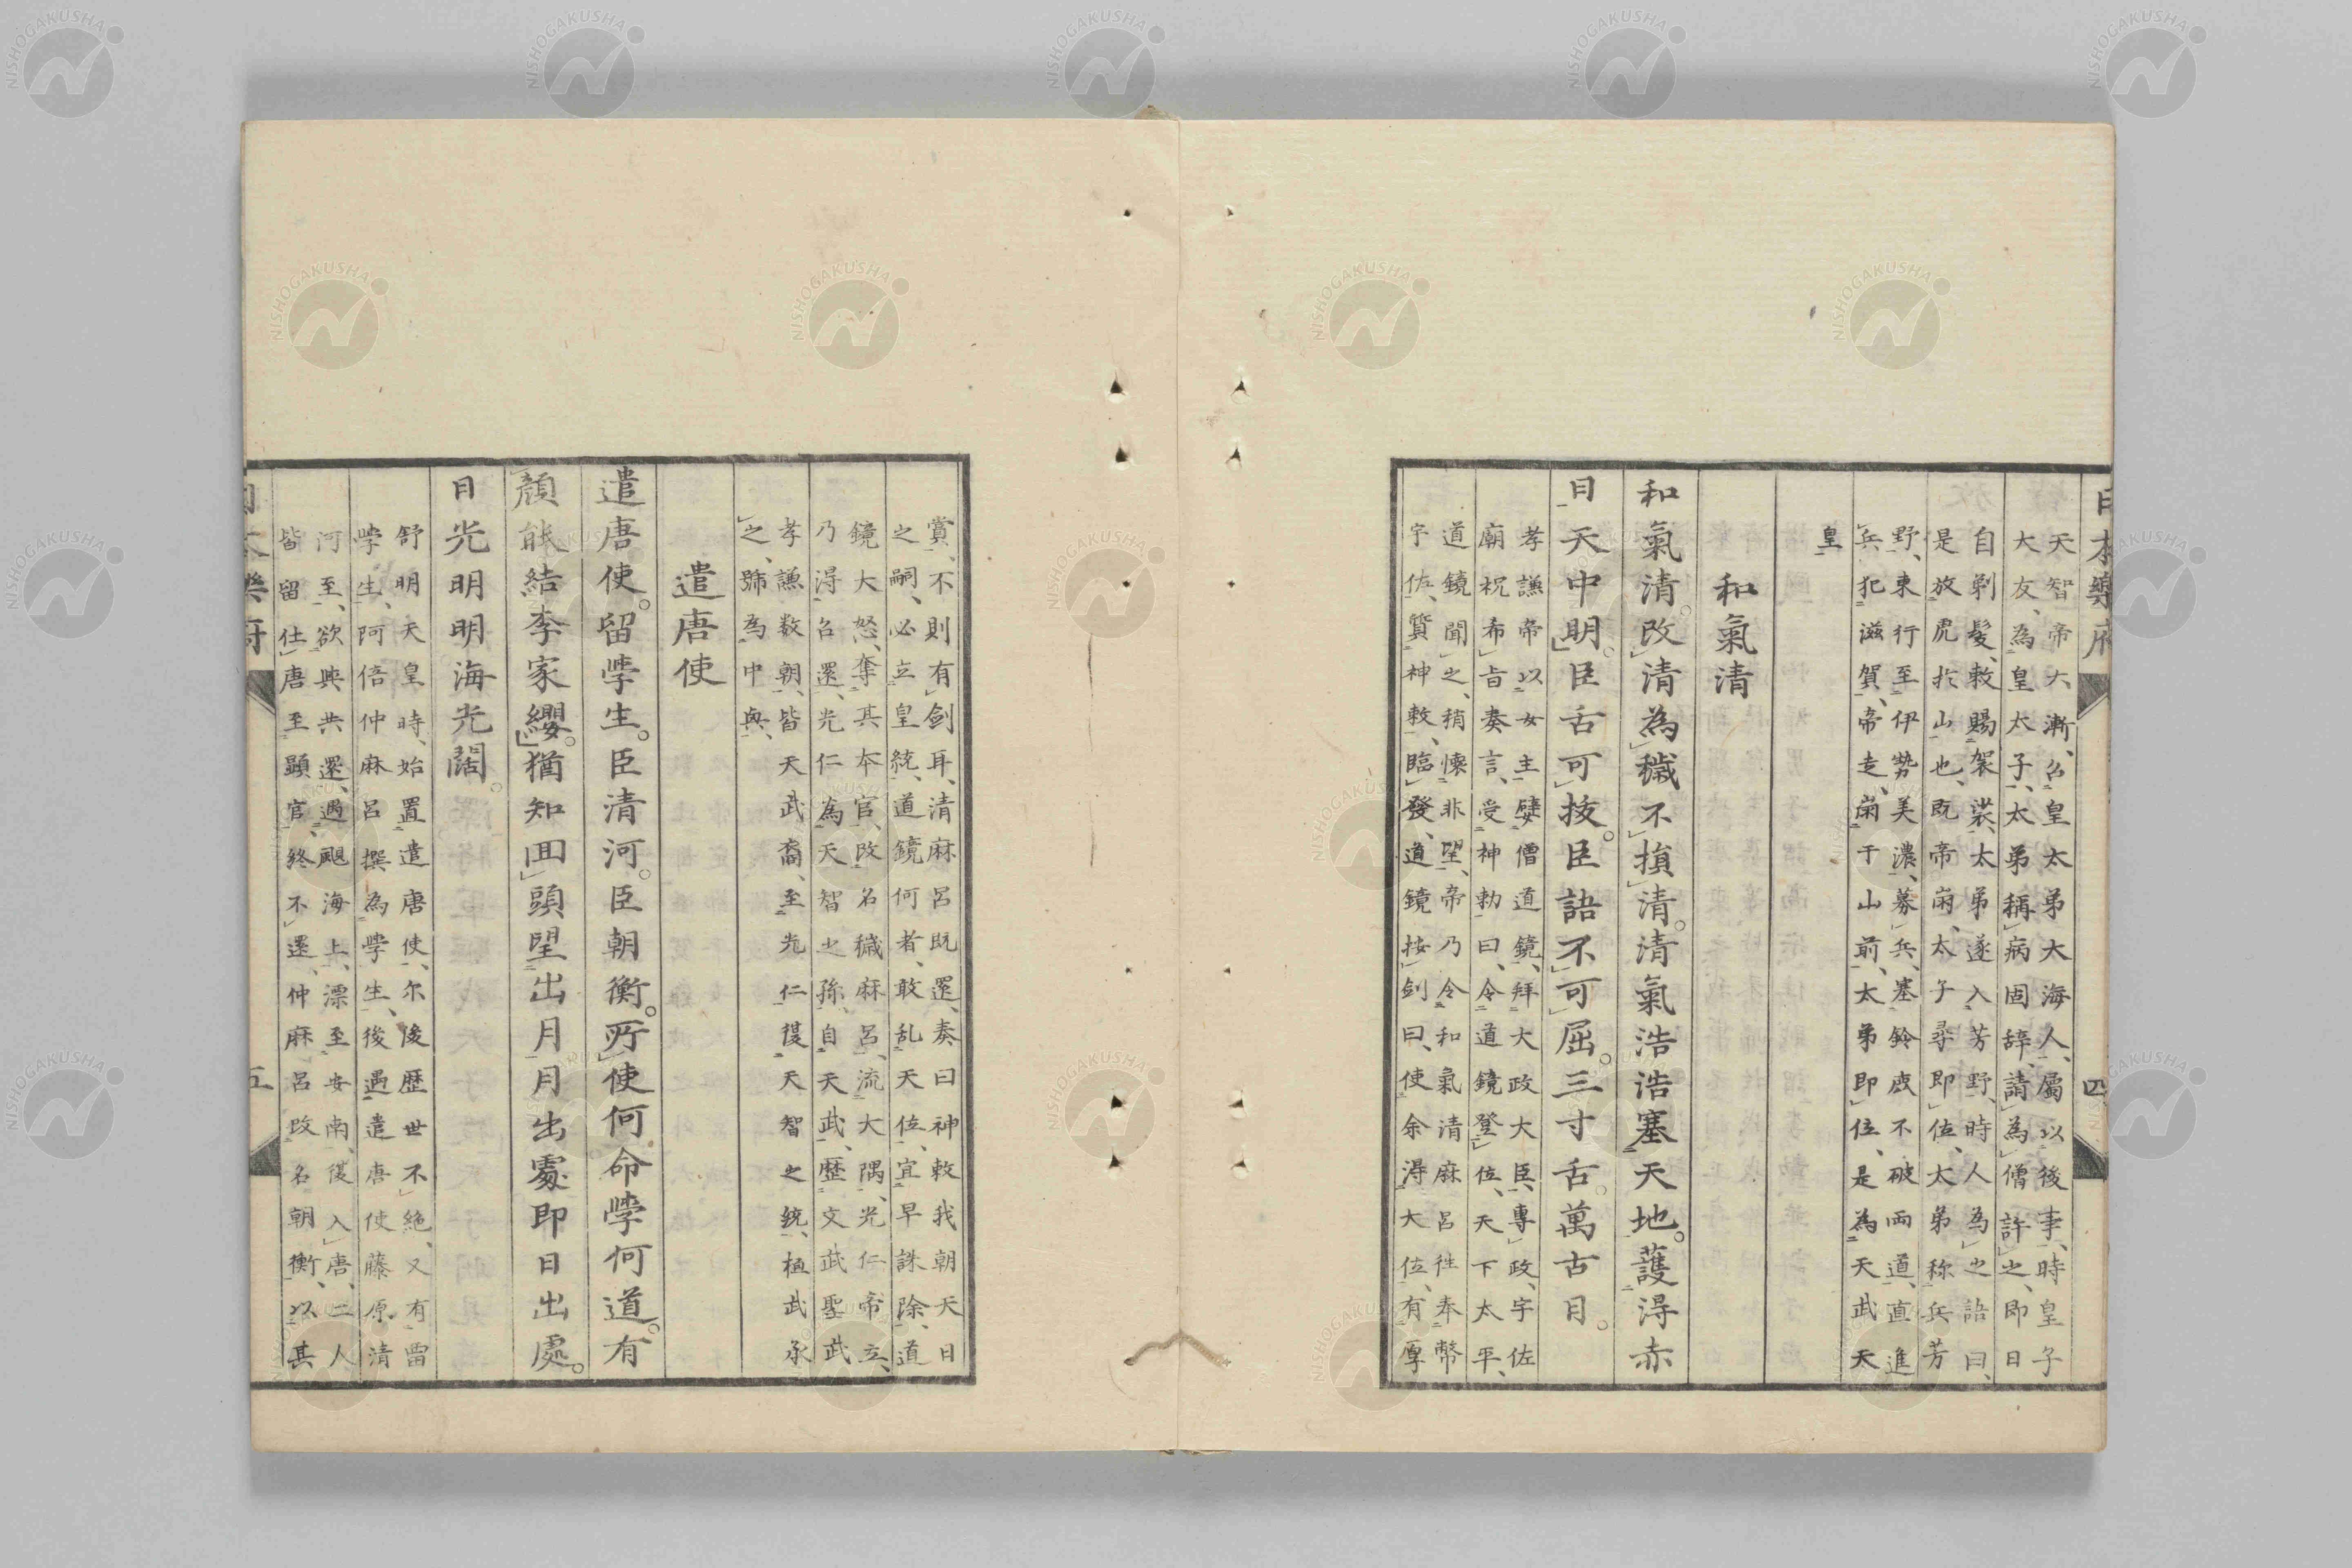 日本樂府
四
天智帝大漸、召皇太弟大海人、屬以後事、時皇子
大友、為皇太子、太弟稱病固辞、請為僧許之、即日
自剃髮、敕賜袈裟、太弟遂入芳野、時人為之語曰、
是放虎於山也、既帝崩、太子尋即位、太弟称兵芳
野、東行至伊勢美濃、募兵、塞鈴鹿不破両道、直進
兵、犯滋賀、帝走、崩于山前、太弟即位、是為天武天
皇
和氣清
和氣清。改清為穢不損清。清氣浩浩塞天地。護得赤
日天中明。臣舌可抜。臣語不可屈。三寸舌。萬古日。
孝謙帝以女主嬖僧道鏡、拜大政大臣、專政、宇佐
廟祝希旨奏言、受神勅曰、令道鏡登位、天下太平、
道鏡聞之、稍懐非望、帝乃令和氣清麻呂徃奉幣
宇佐、質神敕、臨發、道鏡按剣曰、使余得大位、有厚
賞、不則有剣耳、清麻呂既還、奏曰神敕我朝天日
之嗣、必立皇統、道鏡何者、敢乱天位、宜早誅除、道
鏡大怒、奪其本官、改名穢麻呂、流大隅、光仁帝立、
乃得召還、光仁為天智之孫、自天武、歴文武聖武
孝謙数朝、皆天武裔、至光仁復天智之統、桓武承
之、號為中興、
遣唐使
遣唐使。留學生。臣清河。臣朝衡。所使何命學何道。有
顏能結李家纓。猶知回頭望出月月出處即日出處。
日光明明海光闊。
舒明天皇時、始置遣唐使、尓後歴世不絶、又有留
學生、阿倍仲麻呂撰為學生、後遇遣唐使藤原清
河至、欲與共還、遇颶海上、漂至安南、復入唐、二人
皆留仕唐至顯官、終不還、仲麻呂改名朝衡、以其
日本樂府
五